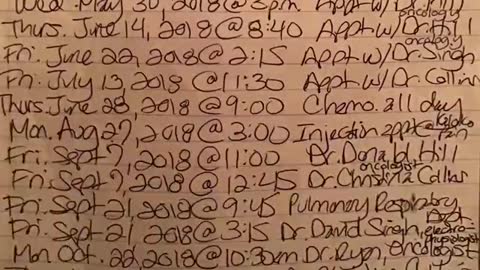 Wed. May 30, 2018 @ 3pm. Appt w/ Dr. Hill
oncology
Thurs. June 14, 2018 @ 8:40 Appt w/ Dr. Hill
oncology
Fri. June 22, 2018 @ 2:15 Appt w/ Dr. Singh
Fri. July 13, 2018 @ 11:30 Appt w/ Dr. Collins
Thurs. June 28, 2018 @ 9:00 Chemo. all day
Mon. Aug 27, 2018 @ 3:00 Injection appt @ Pain
Fri. Sept 7, 2018 @ 11:00 Dr. Donald Hill
oncologist
Fri. Sept 7, 2018 @ 12:45 Dr. Christina Collins
Fri. Sept 21, 2018 @ 9:45 Pulmonary Respiratry
Dept.
Fri. Sept 21, 2018 @ 3:15 Dr. David Singh, electro-
physiologist
Mon. Oct. 22, 2018 @ 10:30am Dr. Ryan, oncologist